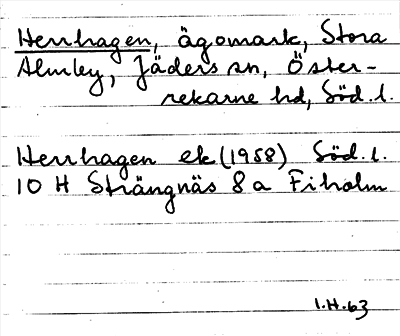 Herrhagen, ägomark, Stora
Almby, Jäders sn, Öster-
rekarne hd, Söd. l.
Herrhagen ek (1958) Söd. l.
10 H Strängnäs 8 a Fiholm
1.H.63